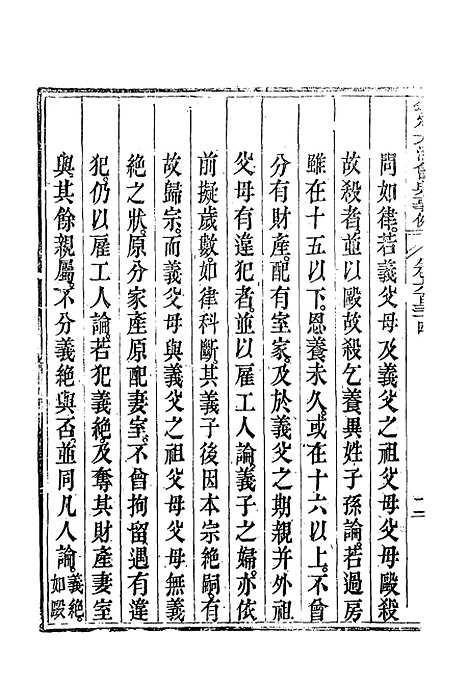 問如律。若義父母及義父之祖父母父母毆殺
故殺者。並以毆故殺乞養異姓子孫論。若過房
雖在十五以下。恩養未久。或在十六以上。不曾
分有財產。配有室家。及於義父之期親并外祖
父母有違犯者。並以雇工人論。義子之婦。亦依
前擬歲數如律科斷。其義子後因本宗絕嗣。有
故歸宗。而義父母與義父之祖父母父母無義
絕之狀。原分家產原配妻室。不曾拘留。遇有違
犯。仍以雇工人論。若犯義絕。及奪其財產妻室
與。其餘親屬。不分義絕與否。並同凡人論。義絕。
如毆